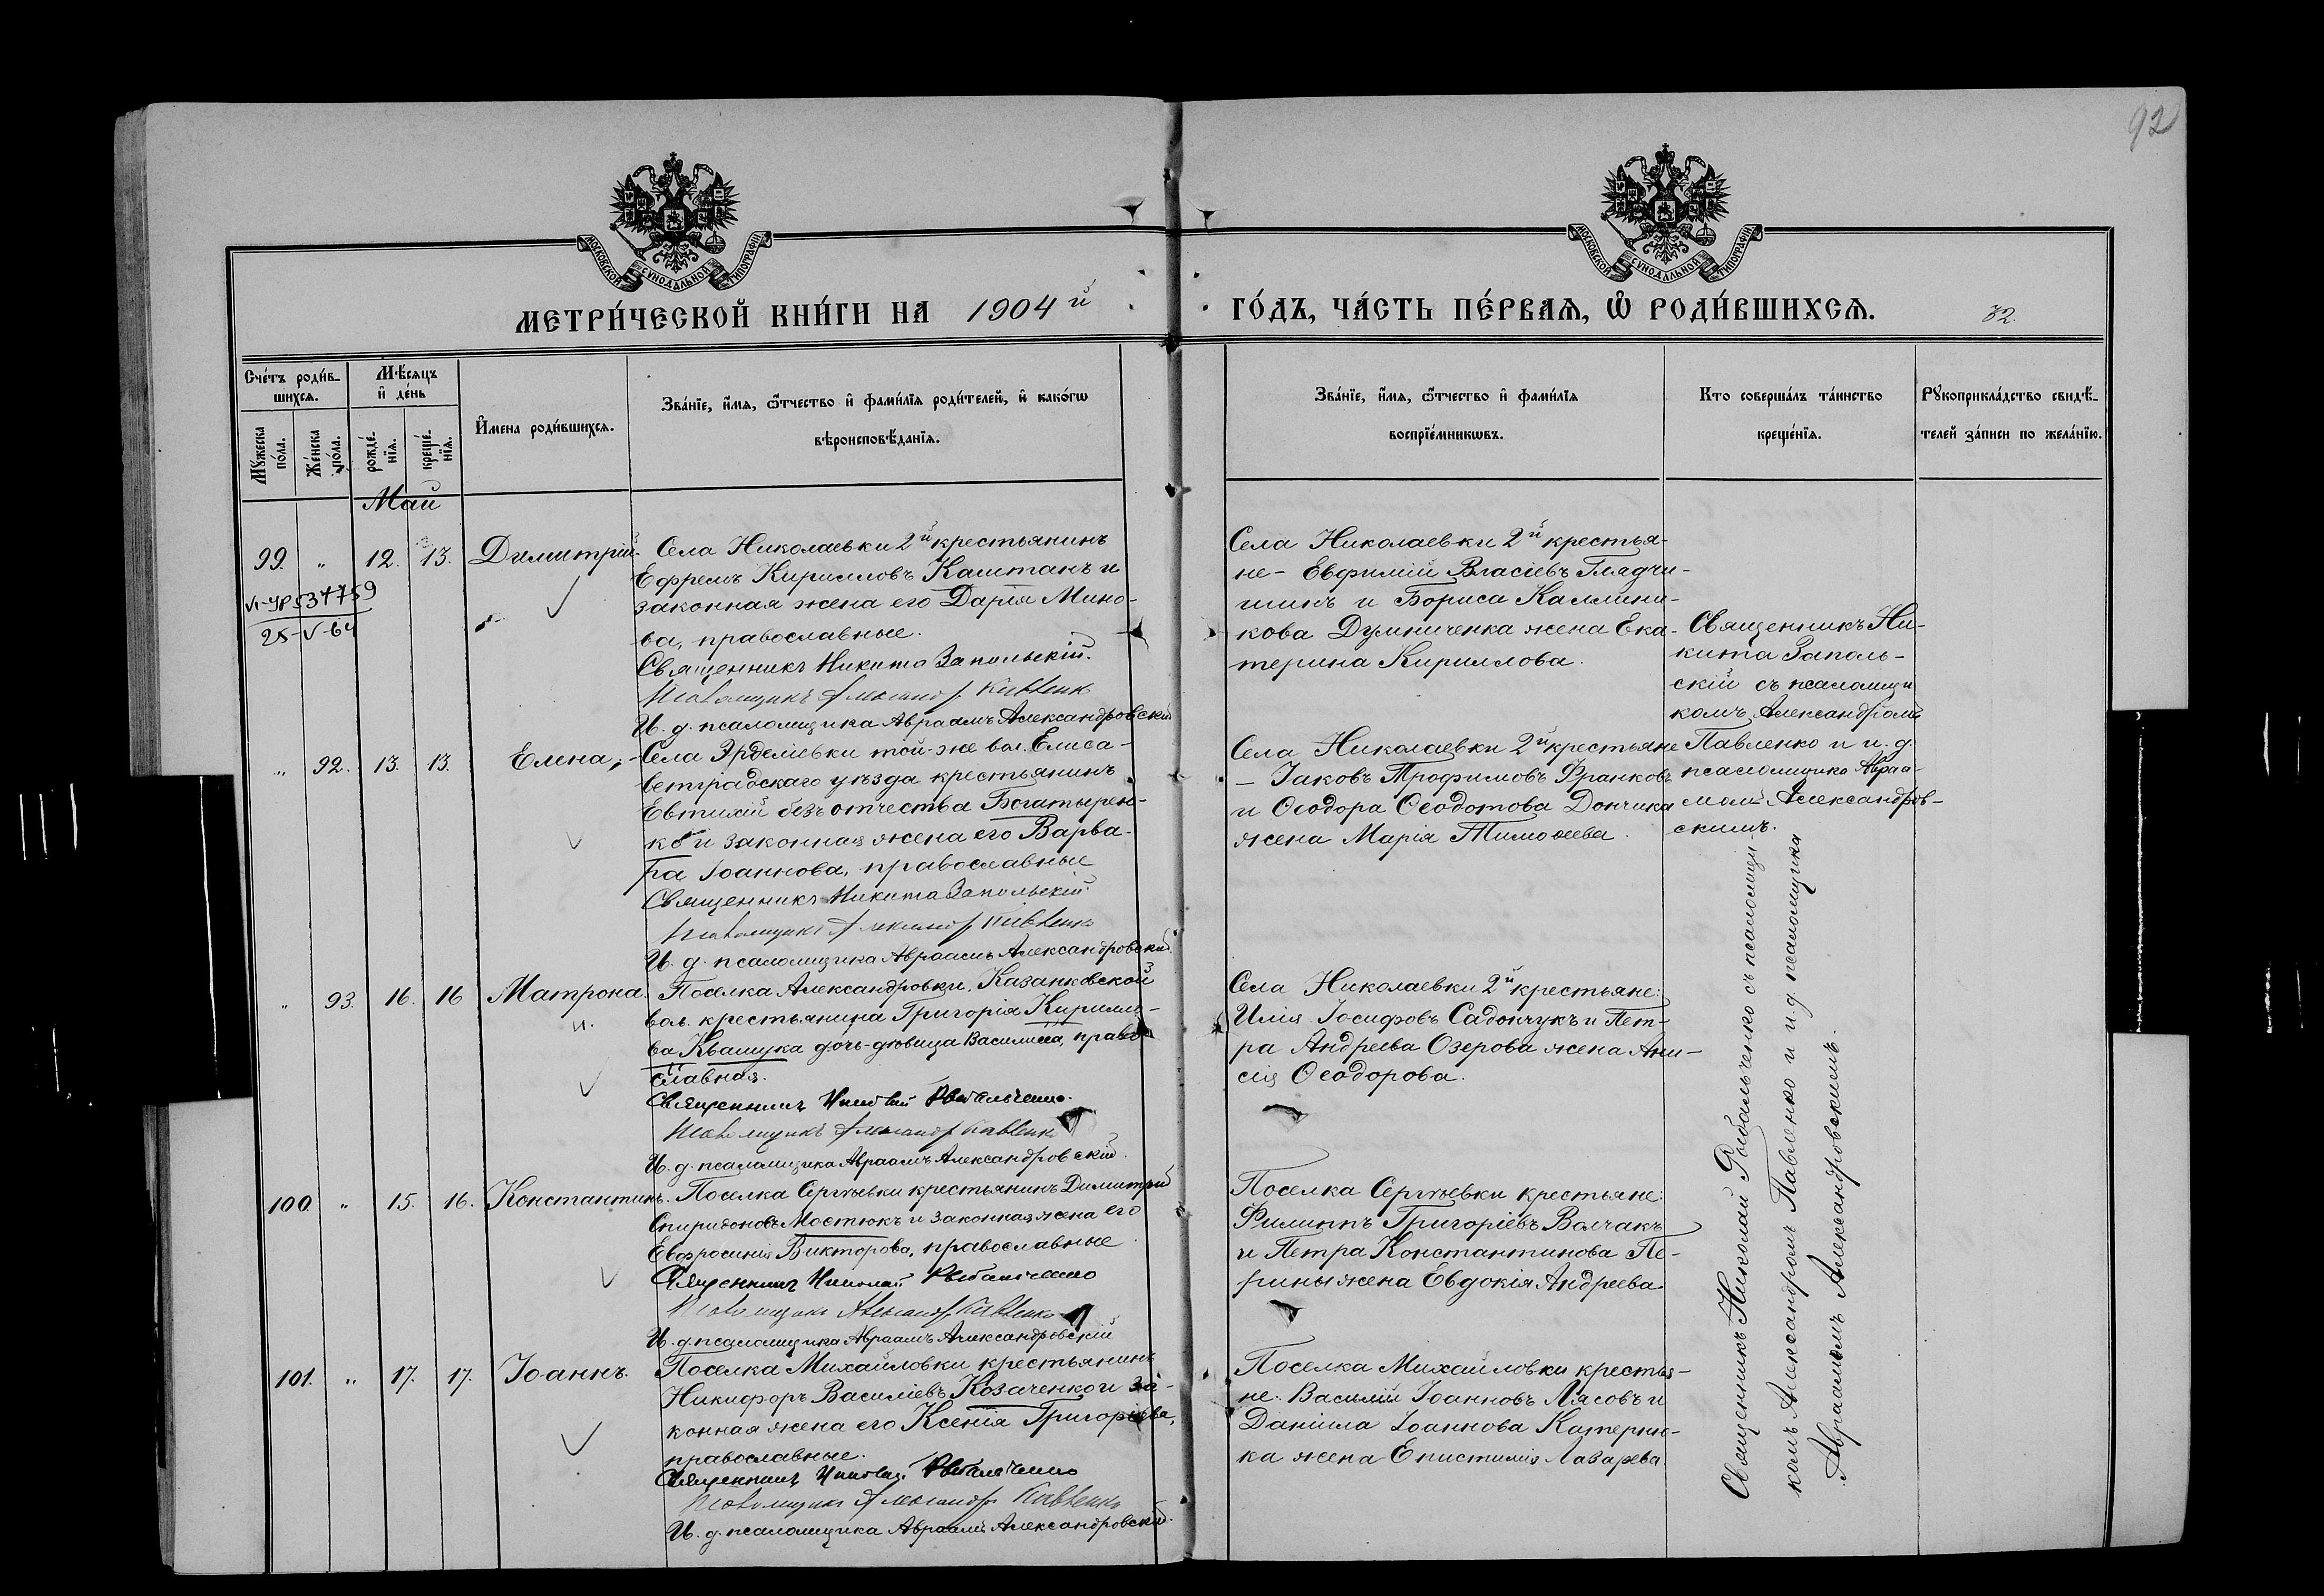 92
МОСКОВСКОЙ СУНОДАЛЬНОЙ ТИПОГРАФІИ
МОСКОВСКОЙ СУНОДАЛЬНОЙ ТИПОГРАФІИ
МЕТРИ́ЧЕСКОЙ КНИ́ГИ НА 1904 й
ГО́ДЪ, ЧА́СТЬ ПЕ́РВАѦ, Ѡ҆ РОДИ́ВШИХСѦ.
32.
Сче́тъ роди́в-
шихсѧ.
Мѣ́сѧцъ
и҆ де́нь
Мꙋ́жеска
по́ла.
Же́нска
по́ла.
рожде́-
нїѧ.
креще́-
нїѧ.
И҆мена роди́вшихсѧ.
Зва́нїе, и҆́мѧ, ѻ҆́тчество и҆ фами́лїѧ роди́телей, и҆ како́гѡ
вѣроисповѣ́данїѧ.
Зва́нїе, и҆́мѧ, ѻ҆́тчество и҆ фами́лїѧ
воспрїе́мникѡвъ.
Кто соверша́лъ та́инство
креще́нїѧ.
Рꙋкоприкла́дство свидѣ́-
телей за́писи по жела́нїю.
Май
99. " 12. 13. Димитрій. Села Николаевки 2й крестьянинъ
Ефремъ Кирилловъ Каштанъ и
законная жена его Дарія Мино-
ва, православные.
Священникъ Никита Запольскій.
Псаломщикъ Александр Павленко
И. д. псаломщика Авраамъ Александровскій
534759
25-V-64
Села Николаевки 2й крестья-
не - Евфимій Власіевъ Гладчи-
шинъ и Бориса Каллини-
кова Думниченка жена Ека-
терина Кириллова.
Священникъ Ни-
кита Заполь-
скій съ псаломщи
комъ Александромъ
Павленко и и. д.
псаломщика Авраа-
момъ Александров-
скимъ.
" 92. 13. 13. Елена, - Села Эрделіевки той-же вол. Елиса-
ветградскаго уѣзда крестьянинъ
Евтихій безъ отчества Богатырен-
ко и законная жена его Варва-
ра Іоаннова, православные
Священникъ Никита Запольскій.
Псаломщикъ Александр Павленко
И. д. псаломщика Авраамъ Александровскій.
Села Николаевки 2й крестьяне
- Іаковъ Трофимовъ Франковъ
и Ѳеодора Ѳеодотова Дончика
жена Марія Тимоѳеева.
" 93. 16. 16 Матрона. Поселка Александровки, Казанковской
вол. крестьянина Григорія Кирилло-
ва Квашука дочь-дѣвица Василисса, право-
славная.
Священникъ Николай Рыбальченко.
Псаломщикъ Александр Павленко
И. д. псаломщика Авраамъ Александровскій.
Села Николаевки 2й крестьяне:
Илія Іосифовъ Садончукъ и Пет-
ра Андреева Озерова жена Ани-
сія Ѳеодорова.
100. " 15. 16. Константинъ. Поселка Сергѣевки крестьянинъ Димитрій
Спиридоновъ Мостюкъ и законная жена его
Евфросинія Викторова, православные.
Священникъ Николай Рыбальченко
Псаломщикъ Александр Павленко
И. д. псаломщика Авраамъ Александровскій
Поселка Сергѣевки крестьяне:
Филиппъ Григоріевъ Волчакъ
и Петра Константинова Пе-
рины жена Евдокія Андреева.
101. " 17. 17. Іоаннъ. Поселка Михайловки крестьянинъ
Никифоръ Василіевъ Козаченко и за-
конная жена его Ксенія Григоріева,
православные.
Священникъ Николай Рыбальченко
Псаломщикъ Александр Павленко
И. д. псаломщика Авраамъ Александровскій.
Поселка Михайловки крестья-
не: Василій Іоанновъ Лясовъ и
Даніила Іоаннова Катерин-
ка жена Епистимія Лазарева.
Священникъ Николай Рыбальченко съ псаломщи
комъ Александромъ Павленко и и. д. псаломщика
Авраамомъ Александровскимъ.